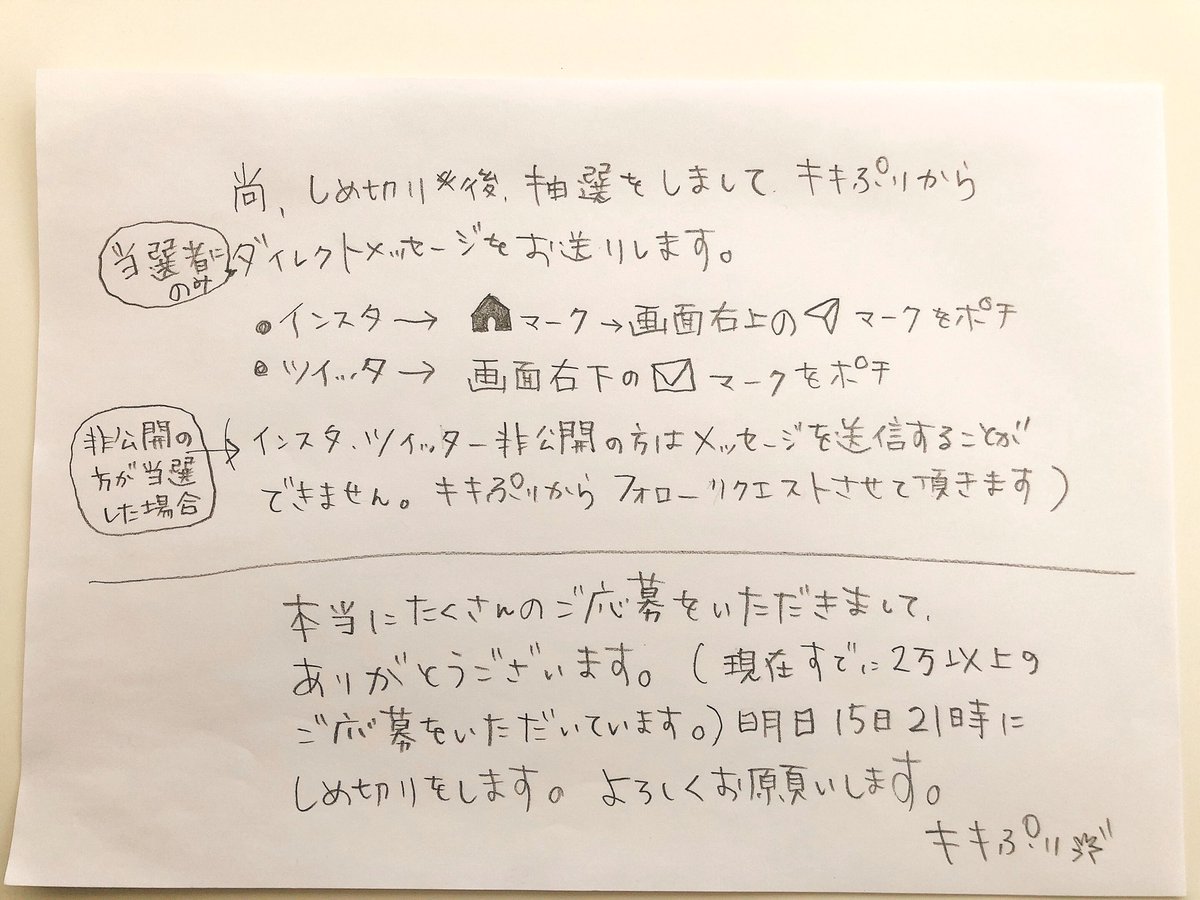 尚、しめ切り後、抽選をしまして、キキぷりから
当選者に
のみ
ダイレクトメッセージをお送りします。
•インスタ→ マーク→画面右上の マークをポチ
•ツイッタ→ 画面右下の マークをポチ
非公開の
方が当選
した場合
→インスタ、ツイッター非公開の方はメッセージを送信することが
できません。キキぷりからフォローリクエストさせて頂きます)
本当にたくさんのご応募をいただきまして、
ありがとうございます。(現在すでに2万以上の
ご応募をいただいています。)明日15日21時に
しめ切りをします。よろしくお願いします。
キキぷり